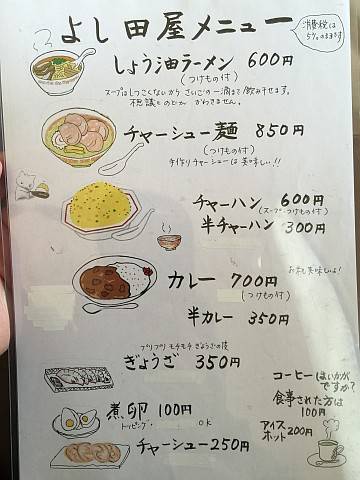 よし田屋メニュー
消費税は
しょう油ラーメン 600円
(つけもの付)
スープはしつこくないから さいごの一滴まで飲み干せます。
不思議とのどが かわきません。
チャーシュー麺 850円
(つけもの付)
手作りチャーシューは美味しい!!
チャーハン 600円
(スープ・つけもの付)
半チャーハン 300円
カレー 700円
(つけもの付)
お米も美味しいよ!
半カレー 350円
プリプリ モチモチ ぎょうざの皮
ぎょうざ 350円
煮卵 100円
トッピング OK
チャーシュー 250円
コーヒーはいかが
ですか?
食事された方は
100円
アイス
ホット 200円